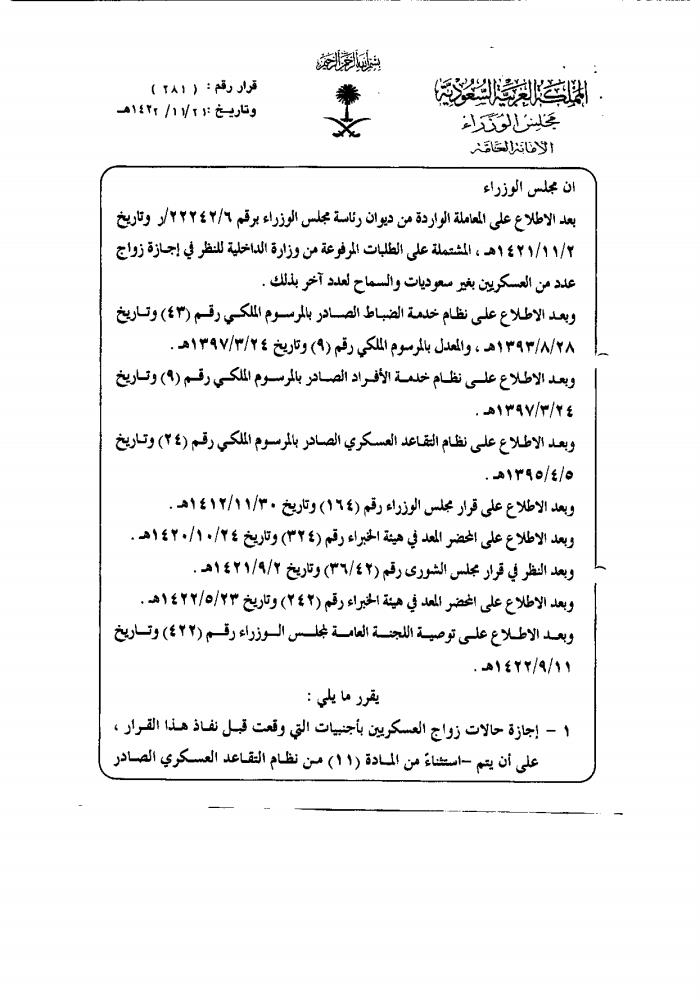 بسم الله الرحمن الرحيم
المملكة العربية السعودية
مجلس الوزراء
الأمانة العامة
قرار رقم : ( ٢٨١ )
وتاريخ :٢١ /١١/ ١٤٢٢هـ
ان مجلس الوزراء
بعد الاطلاع على المعاملة الواردة من ديوان رئاسة مجلس الوزراء برقم ٢٢٢٤٢/٦/ر وتاريخ
١٤٢١/١١/٢هـ ، المشتملة على الطلبات المرفوعة من وزارة الداخلية للنظر في إجازة زواج
عدد من العسكريين بغير سعوديات والسماح لعدد آخر بذلك .
وبعد الاطلاع على نظام خدمة الضباط الصادر بالمرسوم الملكي رقم (٤٣) وتاريخ
١٣٩٣/٨/٢٨هـ ، والمعدل بالمرسوم الملكي رقم (٩) وتاريخ ١٣٩٧/٣/٢٤هـ .
وبعد الاطلاع على نظام خدمة الأفراد الصادر بالمرسوم الملكي رقم (٩) وتاريخ
١٣٩٧/٣/٢٤هـ .
وبعد الاطلاع على نظام التقاعد العسكري الصادر بالمرسوم الملكي رقم (٢٤) وتاريخ
١٣٩٥/٤/٥هـ .
وبعد الاطلاع على قرار مجلس الوزراء رقم (١٦٤) وتاريخ ١٤١٢/١١/٣٠هـ .
وبعد الاطلاع على المحضر المعد في هيئة الخبراء رقم (٣٢٤) وتاريخ ١٤٢٠/١٠/٢٤هـ .
وبعد النظر في قرار مجلس الشورى رقم (٣٦/٤٢) وتاريخ ١٤٢١/٩/٢هـ .
وبعد الاطلاع على المحضر المعد في هيئة الخبراء رقم (٢٤٢) وتاريخ ١٤٢٢/٥/٢٣هـ .
وبعد الاطلاع على توصية اللجنة العامة لمجلس الوزراء رقم (٤٢٢) وتاريخ
١٤٢٢/٩/١١هـ .
يقرر ما يلي :
١ – إجازة حالات زواج العسكريين بأجنبيات التي وقعت قبل نفاذ هذا القرار ،
على أن يتم –استثناءً من المادة (١١) من نظام التقاعد العسكري الصادر